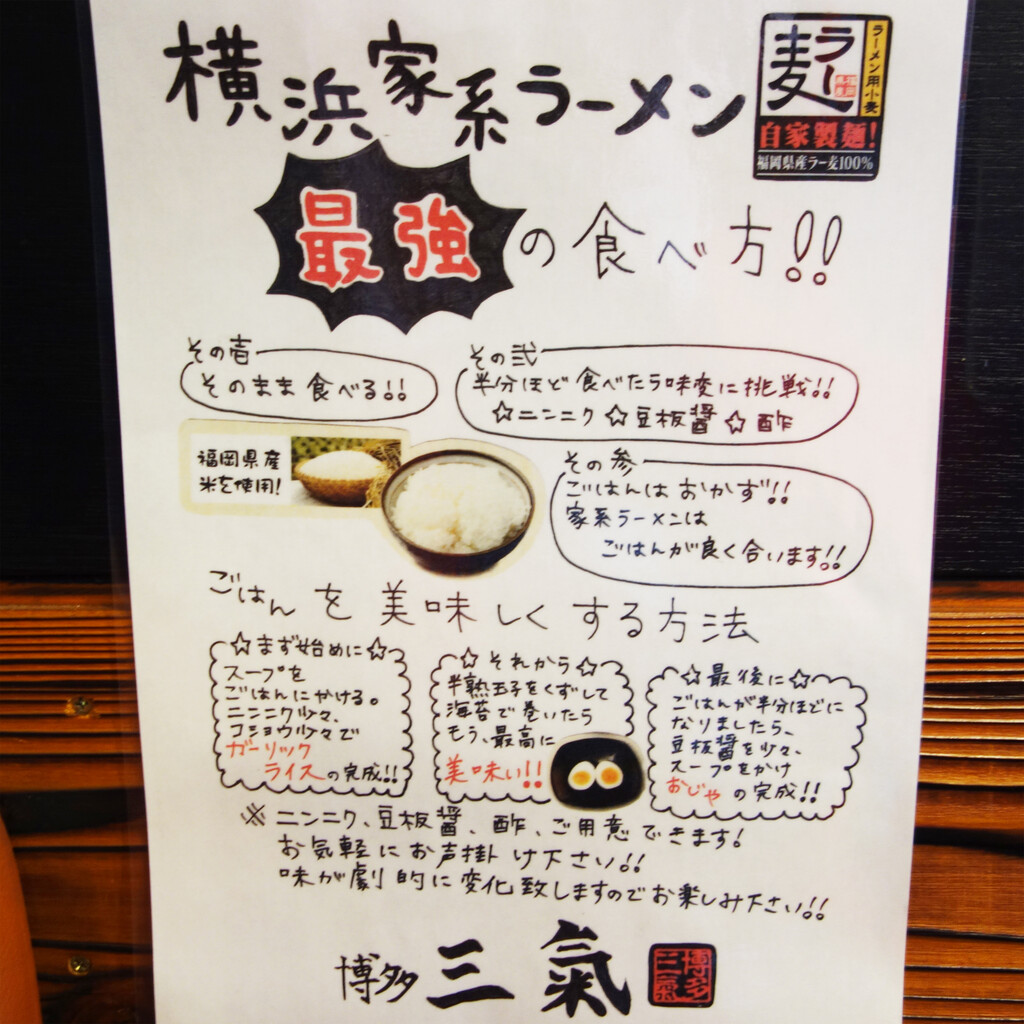 横浜家系ラーメン
ラー麦
ラーメン用小麦
自家製麺!
福岡県産ラー麦100%
最強の食べ方!!
その壱
そのまま食べる!!
その弐
半分ほど食べたら味変に挑戦!!
☆ニンニク☆豆板醤☆酢
福岡県産
米を使用!
その参
ごはんはおかず!!
家系ラーメンは
ごはんが良く合います!!
ごはんを美味しくする方法
☆まず始めに☆
スープを
ごはんにかける。
ニンニク少々、
コショウ少々で
ガーリック
ライスの完成!!
☆それから☆
半熟玉子をくずして
海苔で巻いたら
もう、最高に
美味い!!
☆最後に☆
ごはんが半分ほどに
なりましたら、
豆板醤を少々、
スープをかけ
おじやの完成!!
※ニンニク、豆板醤、酢、ご用意できます!
お気軽にお声掛け下さい!!
味が劇的に変化致しますのでお楽しみ下さい!!
博多 三氣
博多
三氣